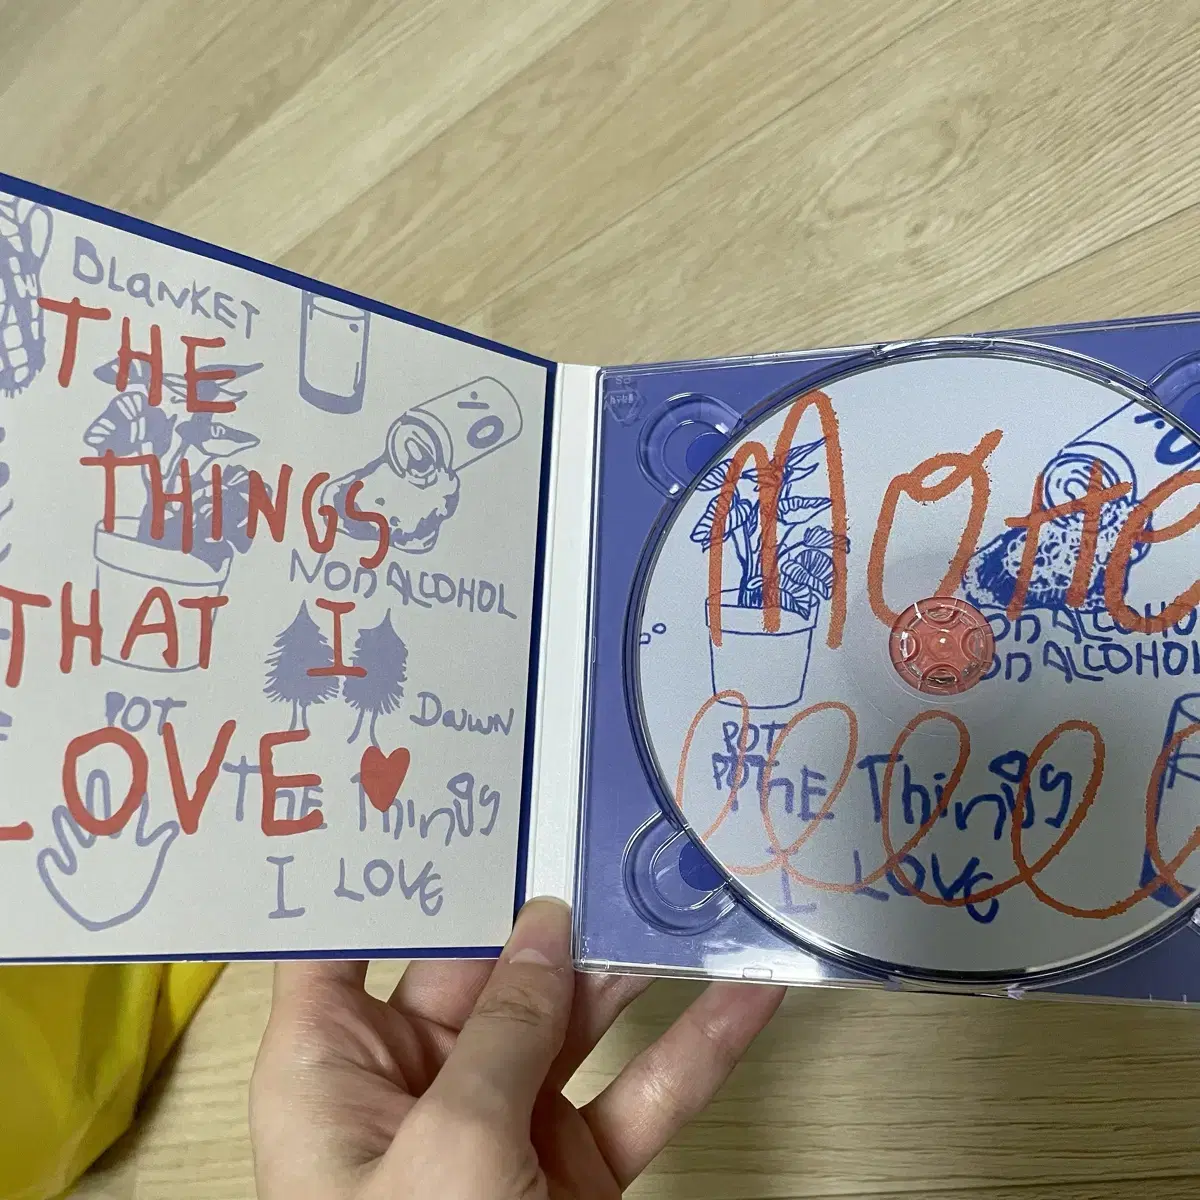 BLaNKET
THE
THINGS
NON ALCOHOL
THAT I
POT
DawwN
LOVE
THE Things
I LOVE
NON ALCOHOL
NON ALCOHOL
POT
POT
THE Things
I LOVE